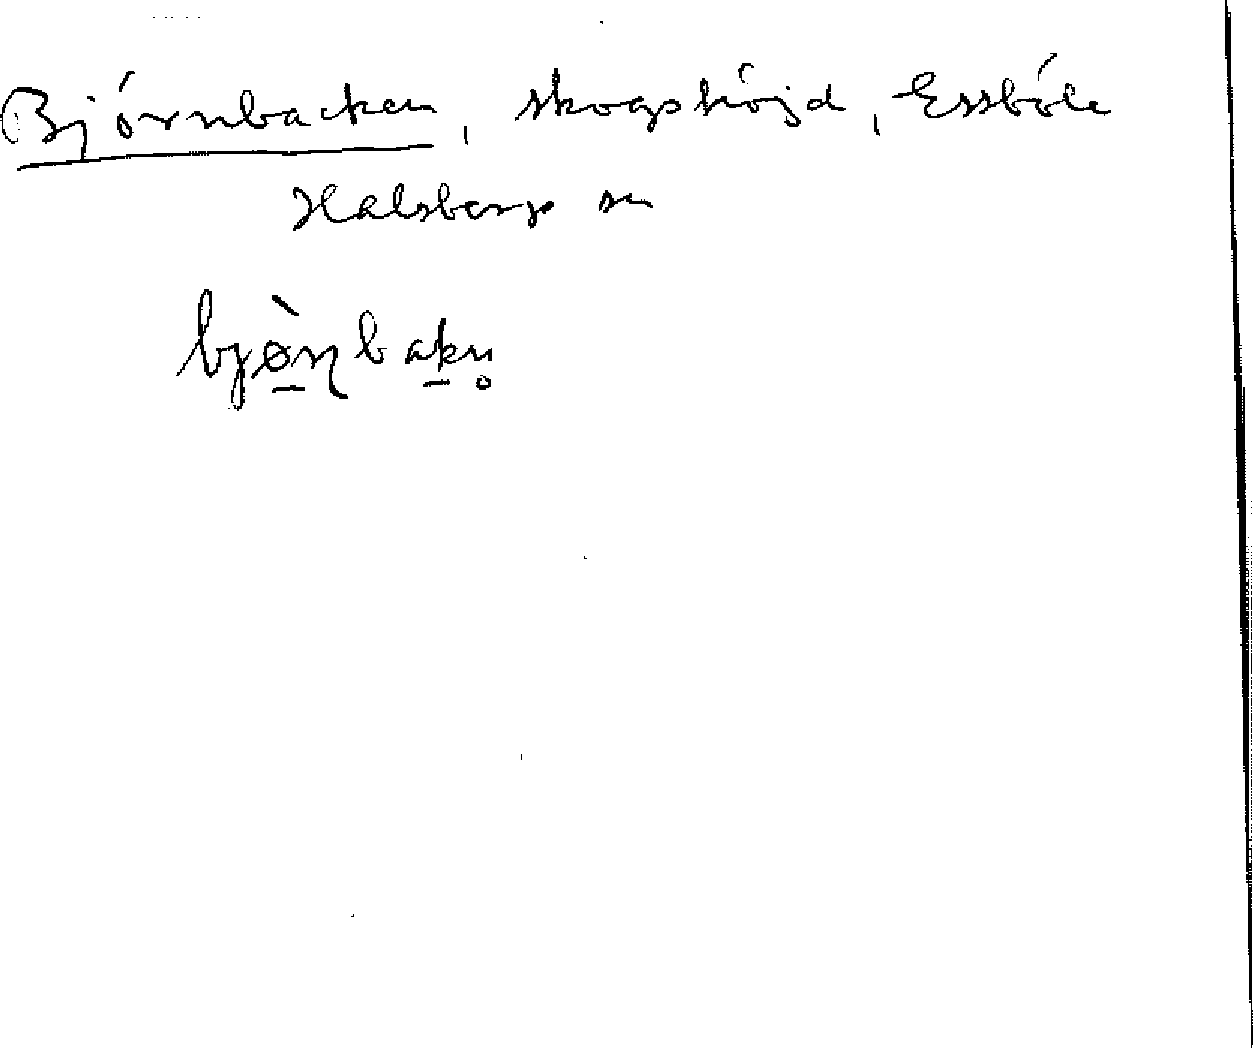 Björnbacken, skogshöjd, Essböle
Halsberg sn
bjø̠̀ɳbak̠n̥